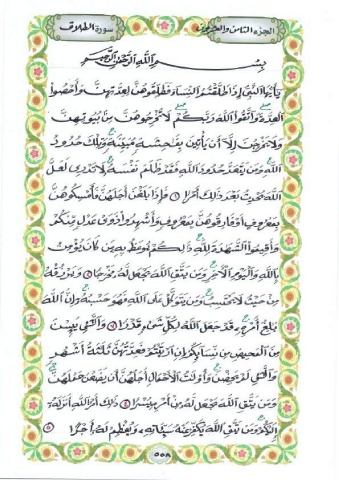 الجزء الثامن والعشرون
سورة الطلاق
بسم الله الرحمن الرحيم
يأيها النبي إذا طلقتم النساء فطلقوهن لعدتهن وأحصوا
العدة واتقوا الله ربكم لا تخرجوهن من بيوتهن
ولا يخرجن إلا أن يأتين بفاحشة مبينة وتلك حدود
الله ومن يتعد حدود الله فقد ظلم نفسه لا تدرى لعل
الله يحدث بعد ذلك أمرا ١ فإذا بلغن أجلهن فأمسكوهن
بمعروف أو فارقوهن بمعروف وأشهدوا ذوى عدل منكم
وأقيموا الشهدة لله ذلكم يوعظ به من كان يؤمن
بالله واليوم الآخر ومن يتق الله يجعل له مخرجا ٢ ويرزقه
من حيث لا يحتسب ومن يتوكل على الله فهو حسبه إن الله
بلغ أمره قد جعل الله لكل شىء قدرا ٣ والئى يئسن
من المحيض من نسائكم إن ارتبتم فعدتهن ثلثة أشهر
والئى لم يحضن وأولت الأحمال أجلهن أن يضعن حملهن
ومن يتق الله يجعل له من أمره يسرا ٤ ذلك أمر الله أنزله
إليكم ومن يتق الله يكفر عنه سيئاته ويعظم له أجرا ٥
٥٥٨